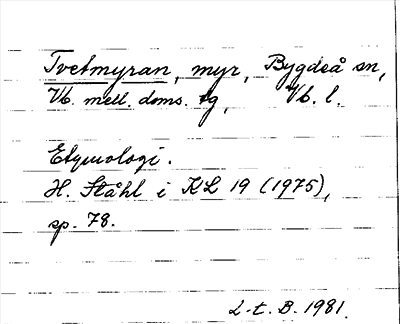 Tvetmyran, myr, Bygdeå sn,
Vb. mell. doms. tg, Vb. l.
Etymologi.
H. Ståhl i KL 19 (1975),
sp. 78.
L-t. B. 1981.